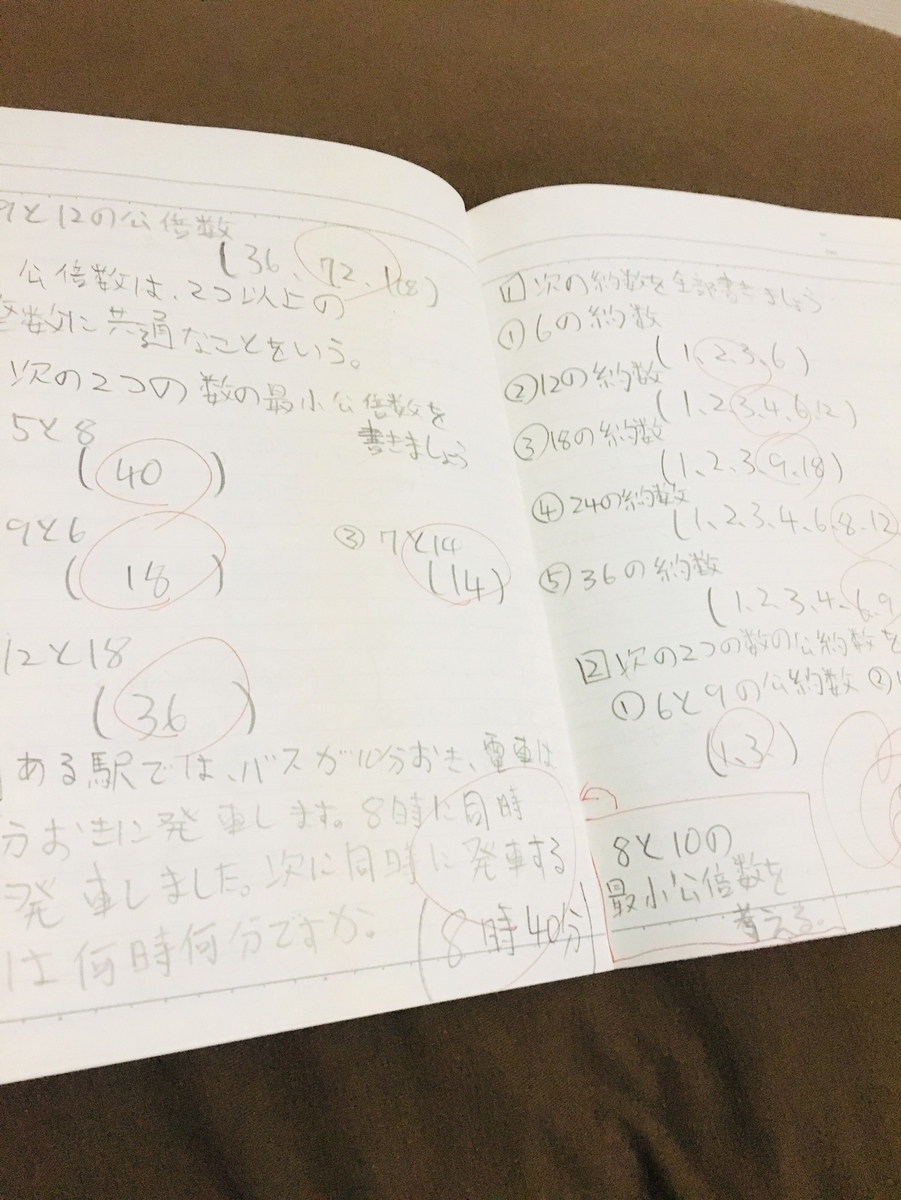 9と12の公倍数
(36、72、108)
公倍数は、2つ以上の
整数に共通なことをいう。
次の2つの数の最小公倍数を
書きましょう
5と8
(40)
9と6
(18)
③ 7と14
(14)
12と18
(36)
ある駅では、バスが10分おき、電車は
分おきに発車します。8時に同時
発車しました。次に同時に発車する
は何時何分ですか。
(8時40分)
1 次の約数を全部書きましょう
①6の約数
(1、2、3、6)
②12の約数
(1、2、3、4、6、12)
③18の約数
(1、2、3、9、18)
④24の約数
(1、2、3、4、6、8、12
⑤36の約数
(1、2、3、4、6、9
2 次の2つの数の公約数を
①6と9の公約数 ②1
(1、3)
8と10の
最小公倍数を
考える。